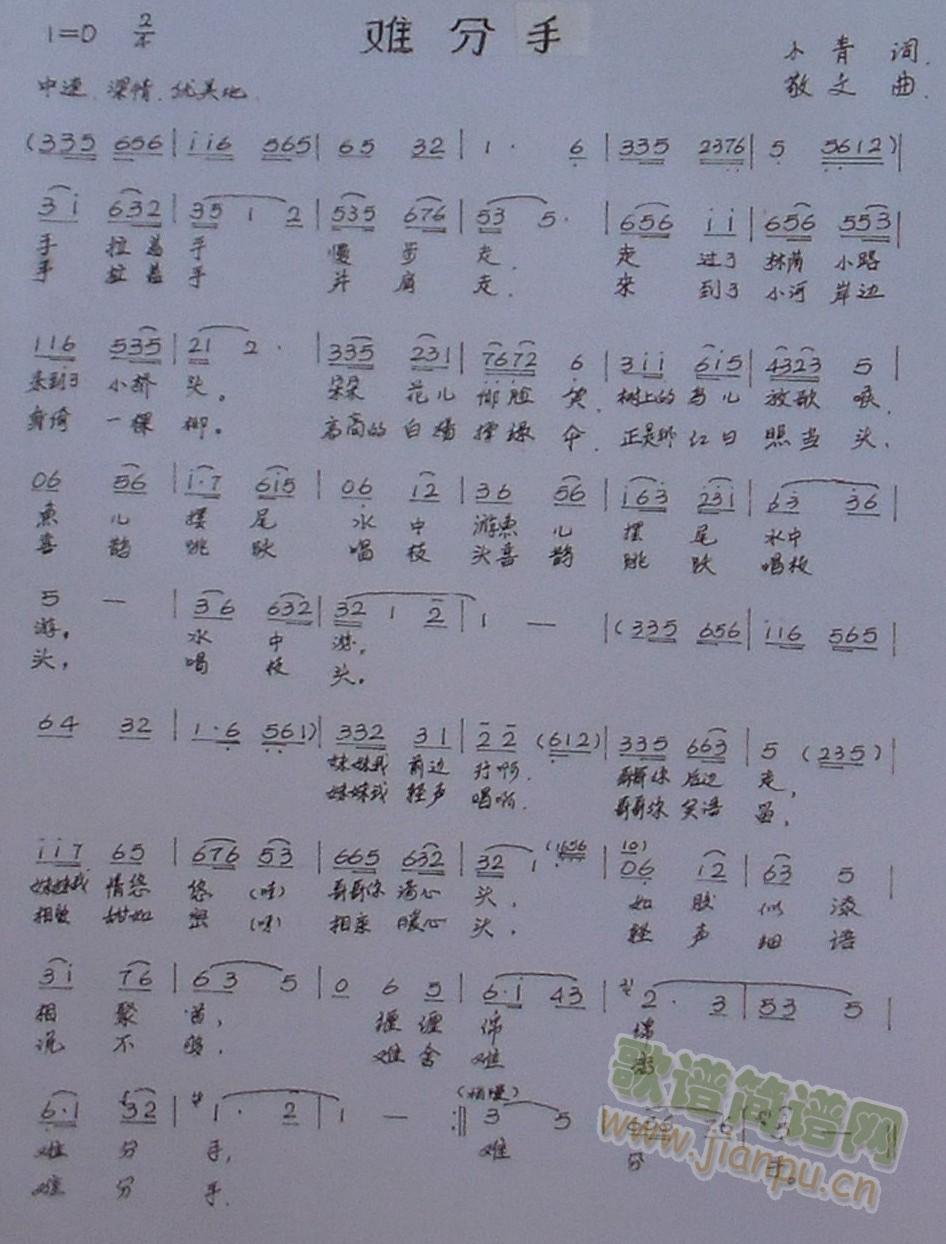 1=D 2/4
难分手
小青 词
中速 深情 优美地
敬文 曲
(335 656 | i i 6 565 | 65 32 | 1 · 6 | 335 2376 | 5 5612) |
3 i 632 | 35 1 2 | 535 676 | 53 5 · | 656 i i | 656 553 |
手 拉着 手 慢 步 走, 走 过了 林荫 小路
手 拉着 手 并 肩 走, 来 到了 小河 岸边
116 535 | 21 2 · | 335 231 | 7672 6 | 3 i i 6 i 5 | 4323 5 |
来到了 小桥 头。 朵朵 花儿 仰脸 笑, 树上的 鸟儿 放歌 喉,
身倚 一棵 柳。 高高的 白 撑 伞, 正是那 红日 照当 头,
06 56 | i · 7 6 i 5 | 06 12 | 36 56 | i 63 23 i | 63 36 |
鱼儿 摆尾 水中 游鱼儿 摆尾 水中
喜鹊 跳跃 唱枝 头喜鹊 跳跃 唱枝
5 — | 36 632 | 32 1 2 | 1 — | (335 656 | i i 6 565 |
游。 水中 游,
头, 唱枝 头。
64 32 | 1 · 6 561) | 332 31 | 2 2 (612) | 335 663 | 5 (235) |
妹妹我 前边 行啊, 哥哥你 后边 走,
妹妹我 轻声 唱啊, 哥哥你 笑语
i i 7 65 | 676 53 | 665 632 | 32 1 · (1656 | 10) 06 12 | 63 5 |
妹妹我 情悠 悠 (哇) 哥哥你 心 头, 如胶 似漆
相 甜如 蜜 (呀) 相亲 暖心 头, 轻声 细语
3 i 76 | 63 5 | 0 6 5 | 6 · i 43 | 2 · 3 | 53 5 |
相聚 首, 缠缠 绵 绵
说不 够, 难舍 难
歌谱简谱网
6 · i 32 | 1 · 2 | 1 — :|| (稍慢) 3 5
难分 手, 难 分 手。
www.jianpu.cn
难分 手.